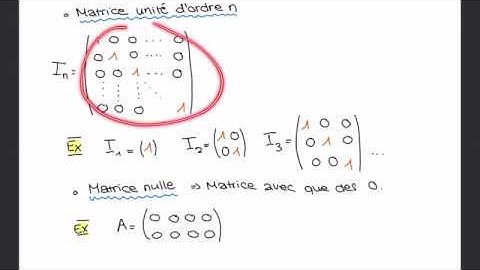 • Matrice unité d'ordre n
1 0 0 .... 0
0 1 0 .... 0
In = 0 0 1 .... 0
0 0 0 1
Ex I1 = (1) I2 = (1 0 I3 = (1 0 0
0 1) 0 1 0
0 0 1) ...
• Matrice nulle ⇒ Matrice avec que des 0.
Ex A = (0 0 0 0
0 0 0 0)